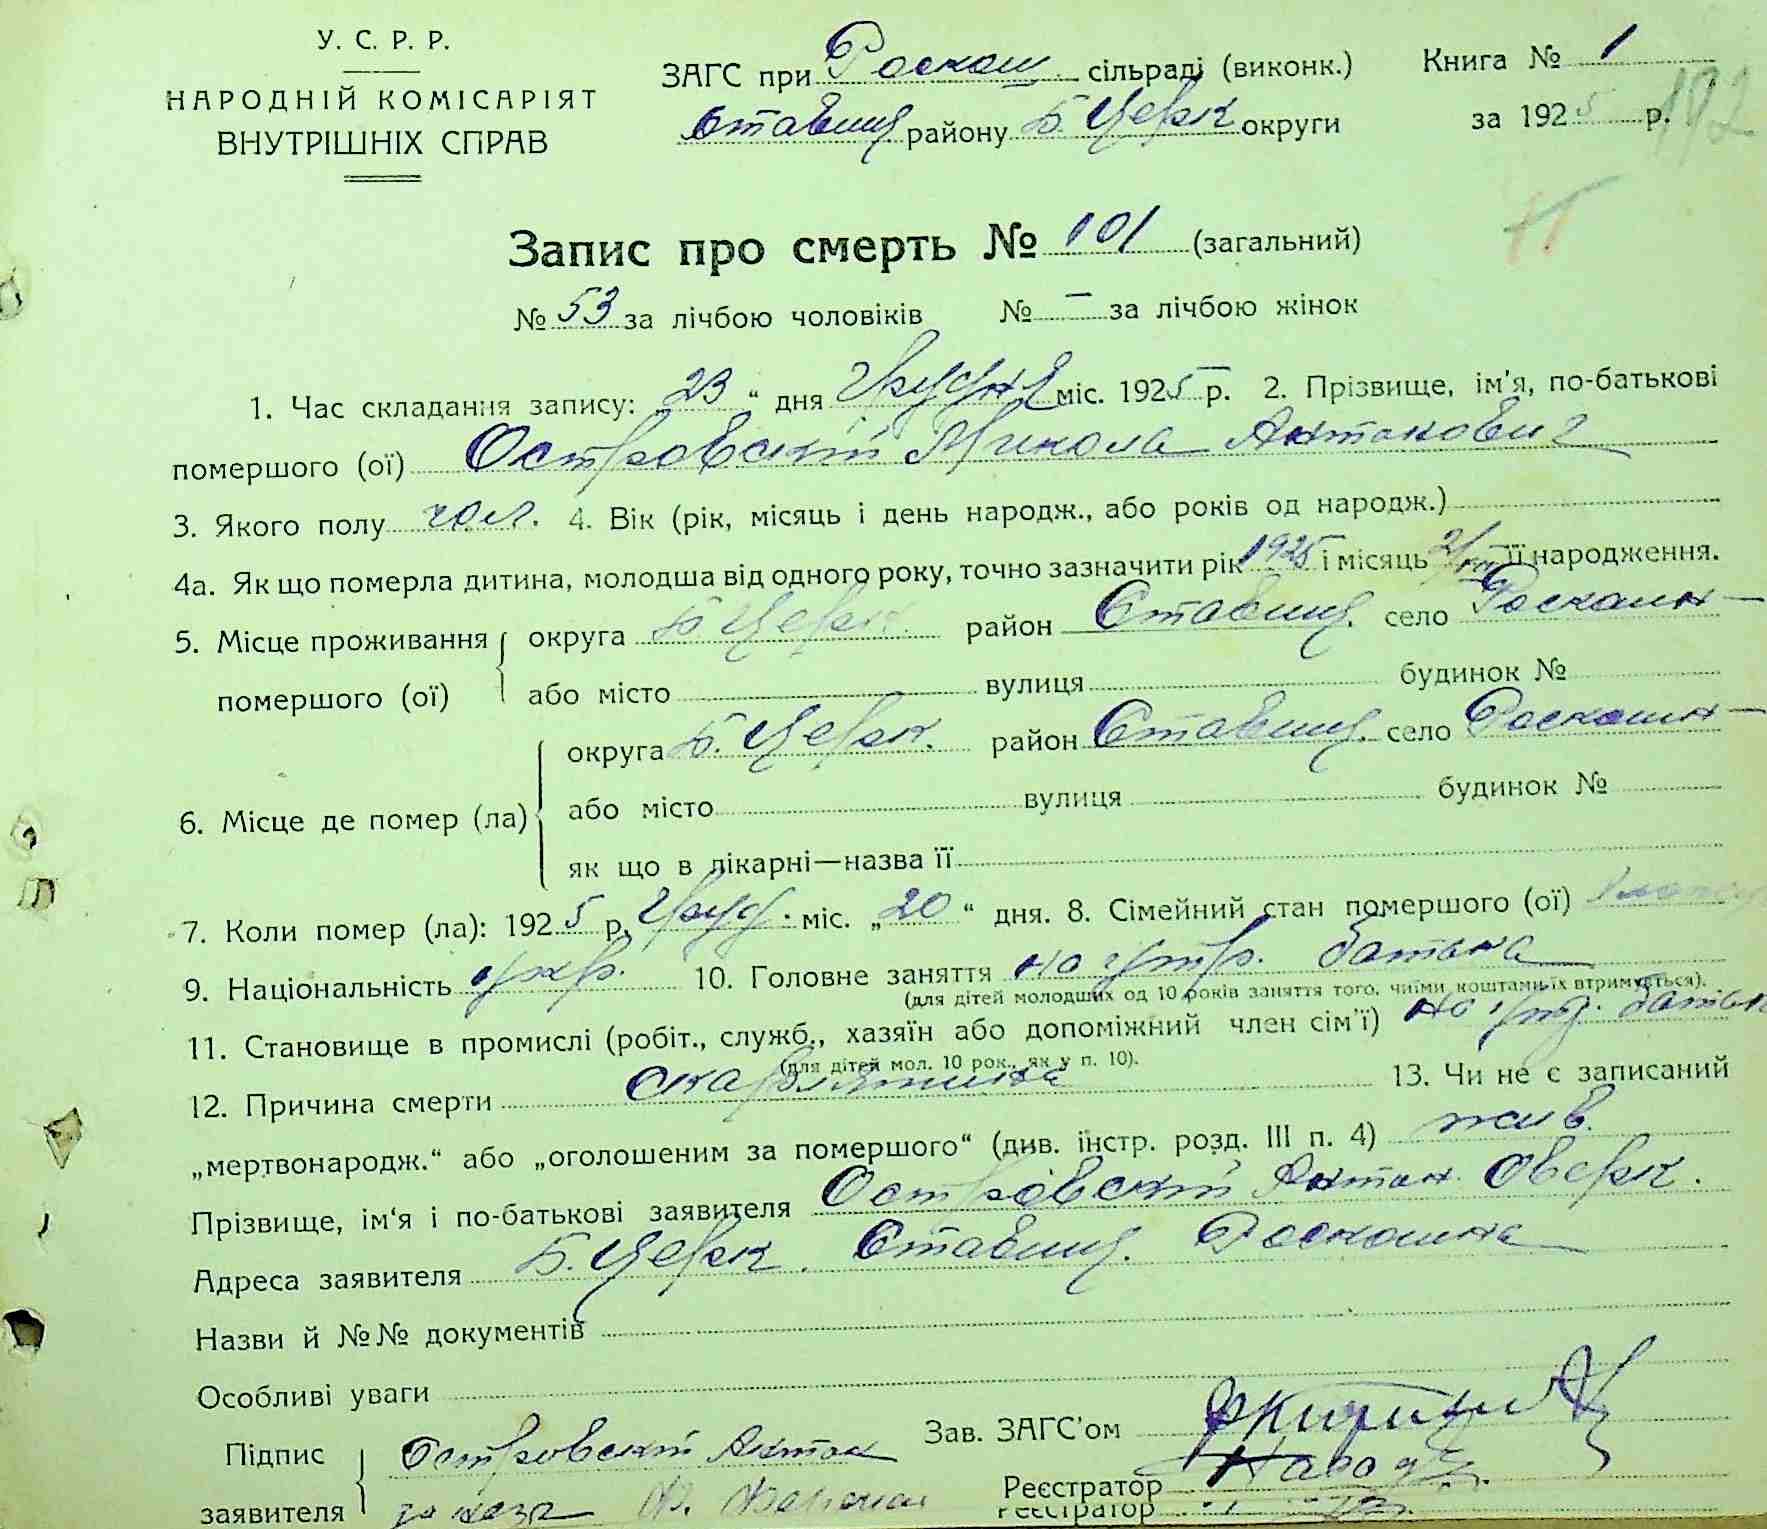 У. С. Р. Р.
НАРОДНІЙ КОМІСАРІЯТ
ВНУТРІШНІХ СПРАВ
ЗАГС при Роскош. сільраді (виконк.) Книга № 1
Ставищ районy Б. Церк округи за 1925 р. 192
Запис про смерть № 101 (загальний)
№ 53 за лічбою чоловіків № — за лічбою жінок
1. Час складання запису: 23 “ дня Грудня міс. 1925 р. 2. Прізвище, ім'я, по-батькові
помершого (ої) Островский Микола Антонович
3. Якого полу чол. 4. Вік (рік, місяць і день народж., або років од народж.)
4а. Як що померла дитина, молодша від одного року, точно зазначити рік 1925 і місяць її народження.
5. Місце проживання округа Б Церк. район Ставищ. село Роскошн—
помершого (ої) або місто вулиця будинок №
округа Б. Церк. район Ставищ. село Роскошн—
6. Місце де помер (ла) або місто вулиця будинок №
як що в лікарні—назва її
7. Коли помер (ла): 1925 р. Груд. міс. „20“ дня. 8. Сімейний стан помершого (ої)
9. Національність укр. 10. Головне заняття на утр. батька
(для дітей молодших од 10 років заняття того, чиїми коштами їх втримується).
11. Становище в промислі (робіт., служб., хазяїн або допоміжний член сім'ї) на утр. батьк
(для дітей мол. 10 рок., як у п. 10).
12. Причина смерти скарлятина 13. Чи не є записаний
„мертвонародж.“ або „оголошеним за помершого“ (див. інстр. розд. III п. 4) жив.
Прізвище, ім'я і по-батькові заявителя Островский Антон Оверк.
Адреса заявителя Б. Церк. Ставищ. Роскошна
Назви й №№ документів
Особливі уваги
Підпис Островский Антон Зав. ЗАГС'ом
заявителя Реєстратор
Реєстратор